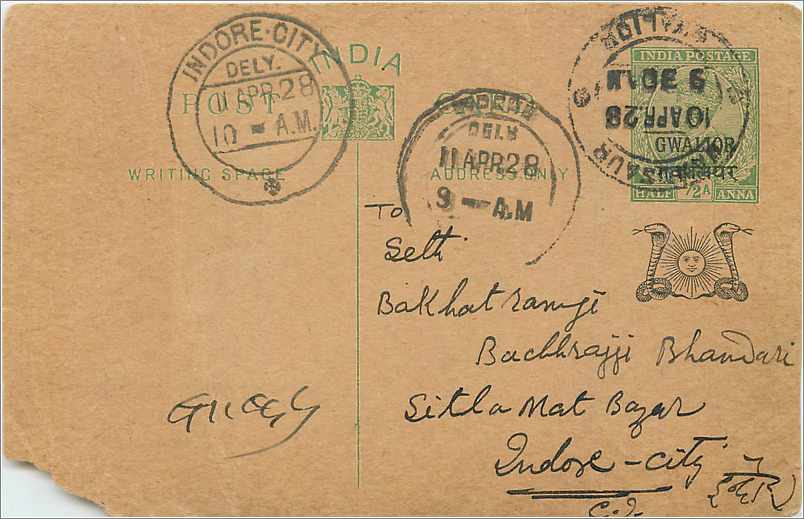 INDORE-CITY
DELY.
11 APR.28
10 - A.M.
INDIA
POST
WRITING SPACE
INDORE
DELY
11 APR 28
9 — A.M
ADDRESS ONLY
GWALIOR
9 30 A M
10 APR.28
INDIA POSTAGE
GWALIOR
ग्वालियर
HALF 1/2A ANNA
To
Seth
Bakhatramji
Bachhrajji Bhandari
Sitla Mat Bazar
Indore - city
C.I.
इंदौर